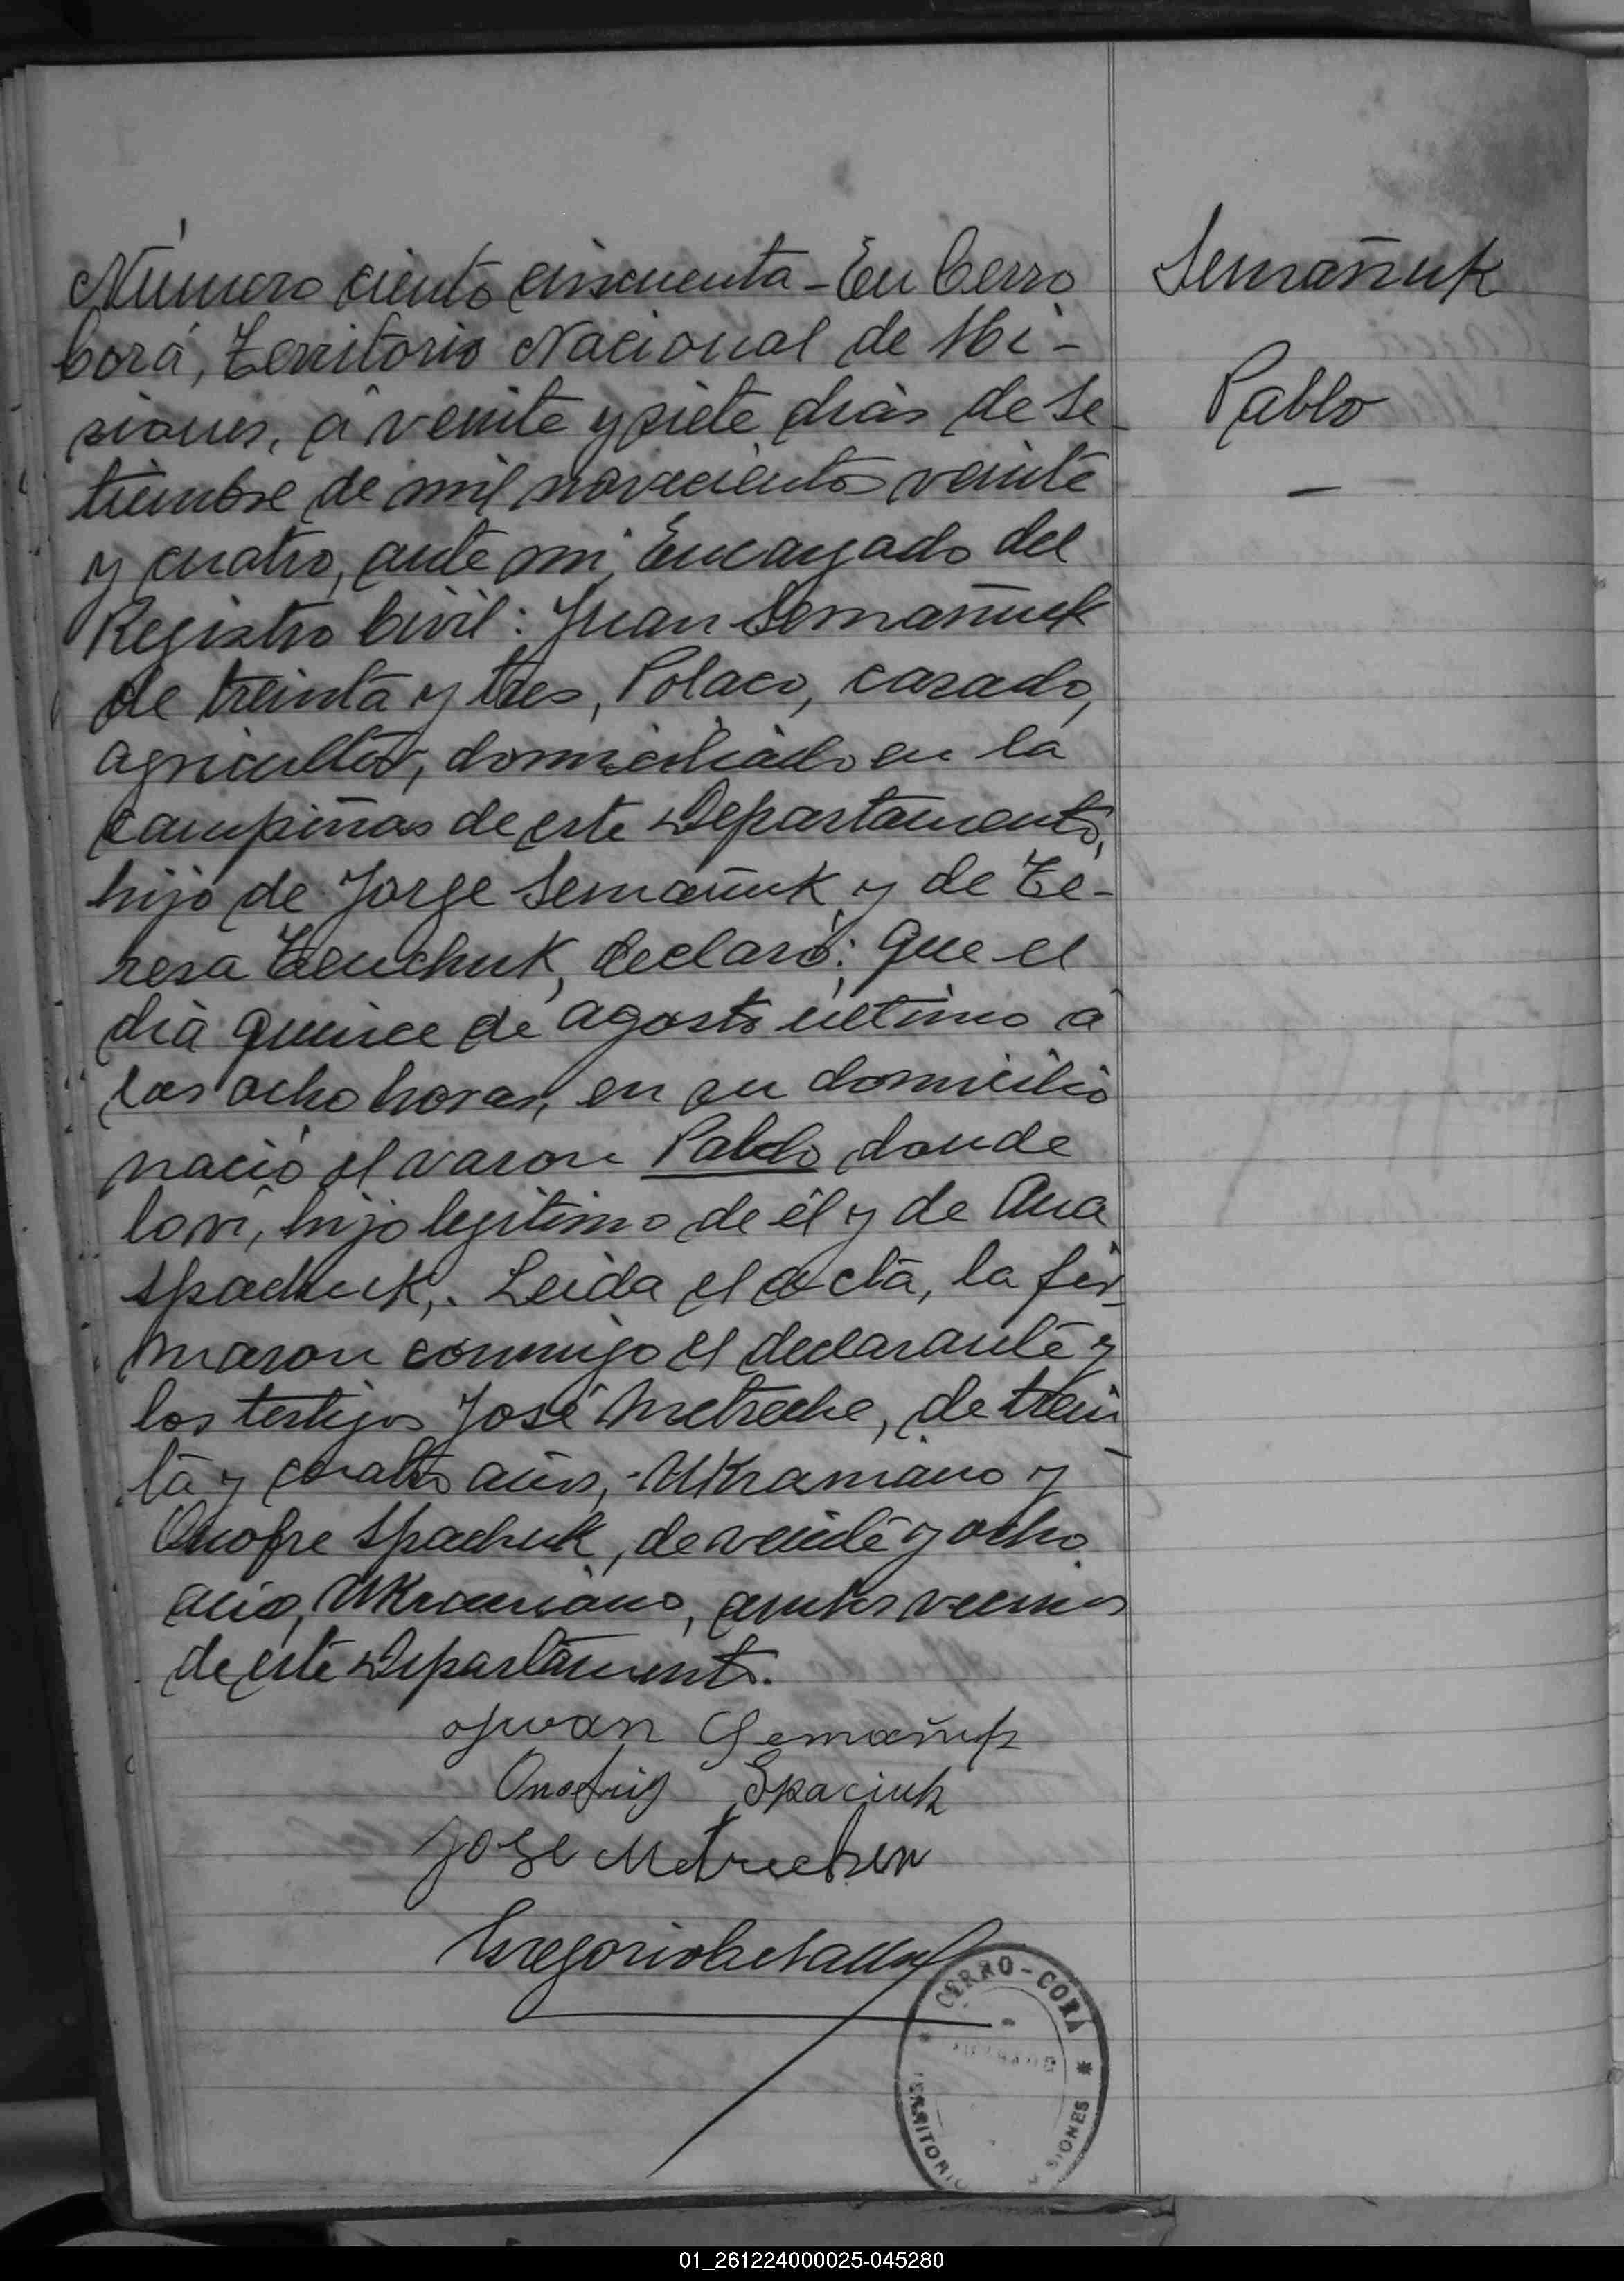 Semañuk
Pablo
Número ciento cincuenta - En Cerro
Corá, Territorio Nacional de Mi-
siones, á veinte y siete dias de Se-
tiembre de mil novecientos veinte
y cuatro, ante mi, Encargado del
Registro Civil: Juan Semañuk
de treinta y tres, Polaco, casado,
agricultor, domiciliado en la
campiñas de este Departamento,
hijo de Jorge Semañuk y de Te-
resa Tenchuk, declaró: Que el
dia quince de agosto último a
las ocho horas, en su domicilio
nació el varon Pablo, donde
lo vi, hijo legitimo de él y de Ana
Spachuk,. Leida el acta, la fir-
maron conmigo el declarante y
los testigos José Metreche, de trein
ta y cuatro años, Ukraniano y
Onofre Spachuk, de veinte y ocho
años, Ukraniano, ambos vecinos
de este Departamento.
Juan Semañuk
Onofrig Spaciuk
Jose
Gregorio
CERRO-CORÁ
TERRITORIO
SIONES
01_261224000025-045280